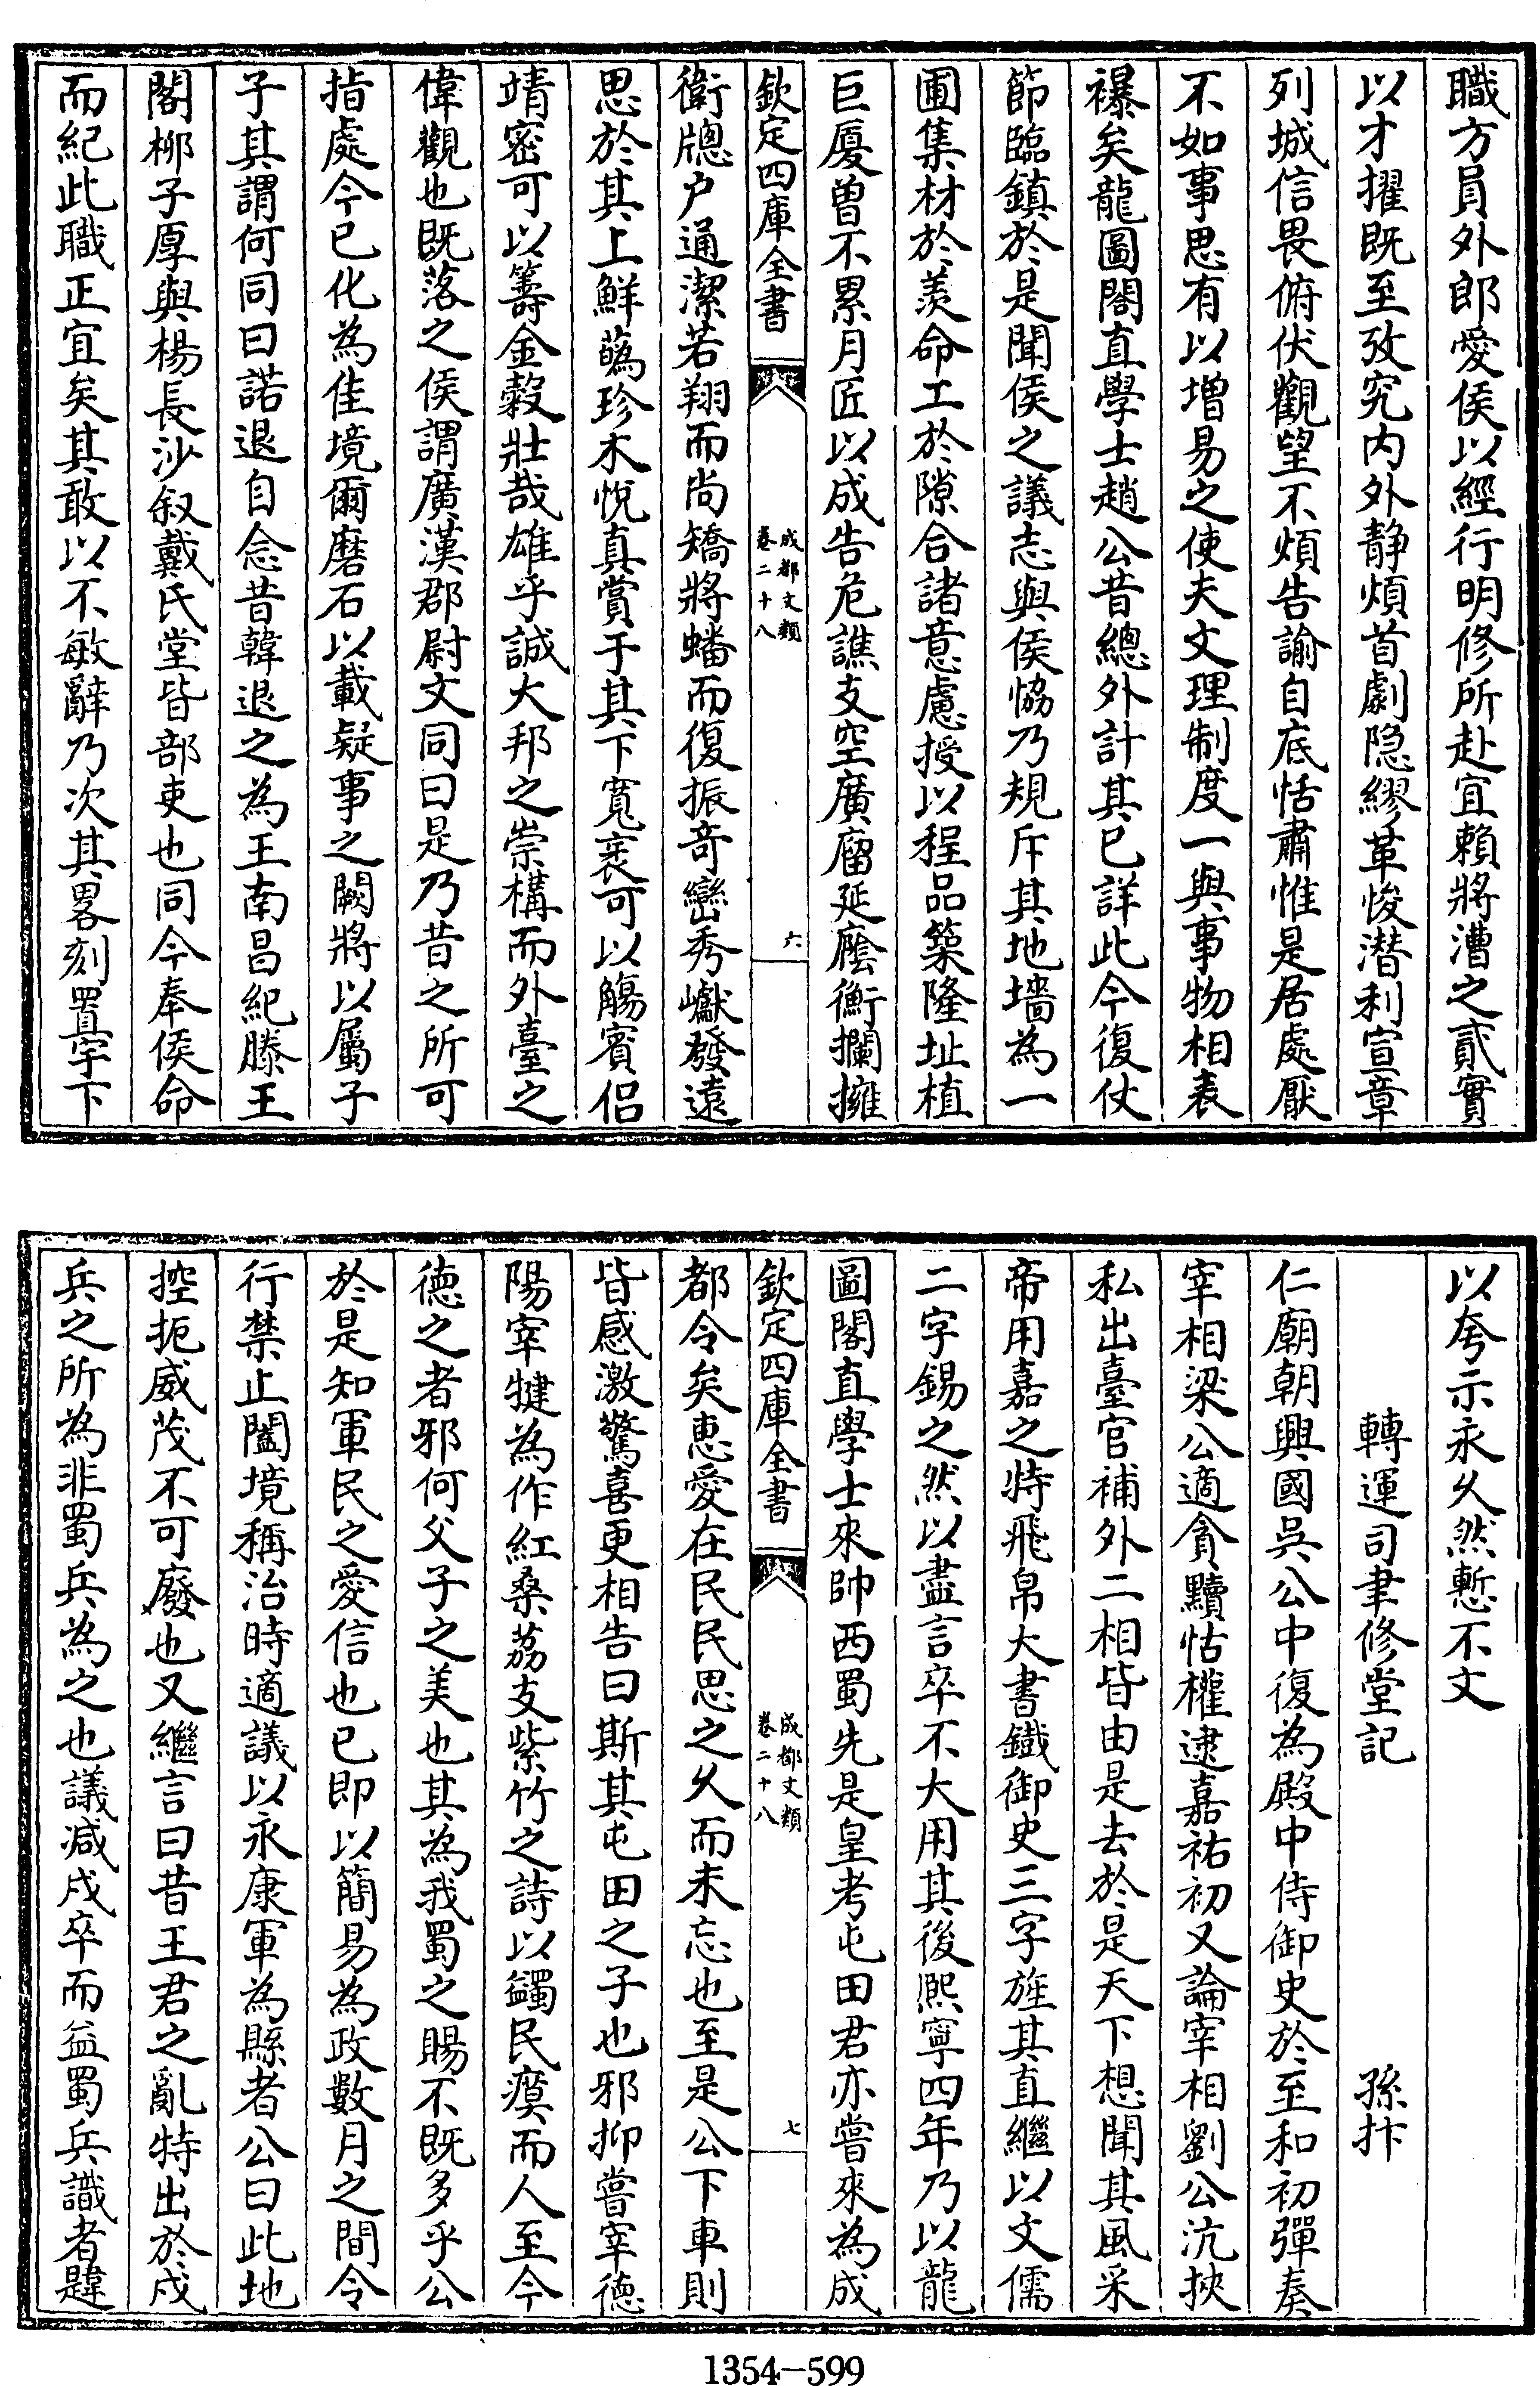 職方員外郎愛侯以經行明修所赴宜頼將漕之貳實
以才擢既至攷究内外静煩首劇隐繆革悛潜利宣章
列城信畏俯伏觀望不煩告諭自底恬肅惟是居處厭
不如事思有以増易之使夫文理制度一與事物相表
襮矣龍圖閣直學士趙公昔總外計其已詳此今復仗
節臨鎮於是聞侯之議志與侯恊乃規斥其地墻為一
圃集材於羨命工於隙合諸意慮授以程品築隆址植
巨厦曽不累月匠以成告危譙支空廣廇延廡衡攔擁
欽定四庫全書
成都文類
卷二十八
六
衛牕户通潔若翔而尚矯將蟠而復振竒巒秀巘發遠
思於其上鮮蘤珍木悦真賞于其下寛袤可以觴賓侣
靖密可以籌金穀壯哉雄乎誠大邦之崇構而外臺之
偉觀也既落之侯謂廣漢郡尉文同曰是乃昔之所可
指處今已化為佳境爾磨石以載疑事之闕將以屬子
子其謂何同曰諾退自念昔韓退之為王南昌紀滕王
閣栁子厚與楊長沙叙戴氏堂皆部吏也同今奉侯命
而紀此職正宜矣其敢以不敏辭乃次其畧刻置宇下
以夸示永久然慙不文
轉運司聿修堂記
孫抃
仁廟朝興國吳公中復為殿中侍御史於至和初彈奏
宰相梁公適貪黷怙權逮嘉祐初又論宰相劉公沆挾
私出臺官補外二相皆由是去於是天下想聞其風采
帝用嘉之特飛帛大書鐵御史三字旌其直繼以文儒
二字錫之然以盡言卒不大用其後熈寧四年乃以龍
圖閣直學士來帥西蜀先是皇考屯田君亦嘗來為成
欽定四庫全書
成都文類
卷二十八
七
都令矣惠愛在民民思之久而未忘也至是公下車則
皆感激驚喜更相告曰斯其屯田之子也邪抑嘗宰德
陽宰犍為作紅桑荔支紫竹之詩以蠲民瘼而人至今
德之者邪何父子之美也其為我蜀之賜不既多乎公
於是知軍民之愛信也已即以簡易為政數月之間令
行禁止闔境稱治時適議以永康軍為縣者公曰此地
控扼威茂不可廢也又繼言曰昔王君之亂特出於戍
兵之所為非蜀兵為之也議減戍卒而益蜀兵識者韙
1354-599